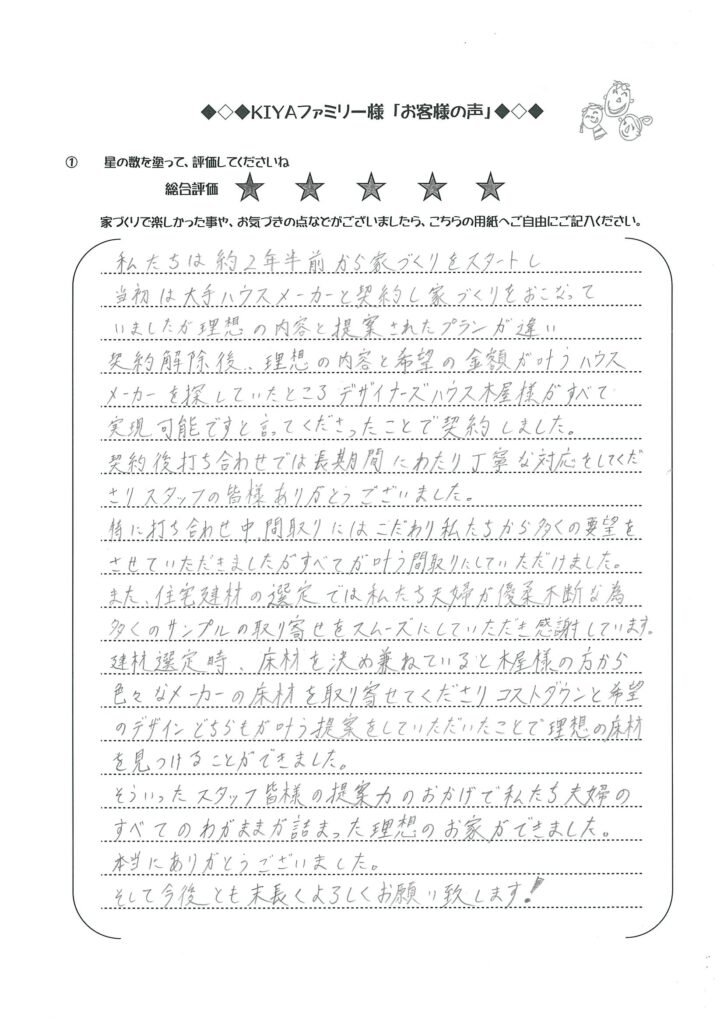 ◆◇◆KIYAファミリー様「お客様の声」◆◇◆
① 星の数を塗って、評価してくださいね
総合評価 ★ ★ ★ ★ ★
家づくりで楽しかった事や、お気づきの点などがございましたら、こちらの用紙へご自由にご記入ください。
私たちは約2年半前から家づくりをスタートし
当初は大手ハウスメーカーと契約し家づくりをおこなって
いましたが理想の内容と提案されたプランが違い
契約解除後、理想の内容と希望の金額が叶うハウス
メーカーを探していたところデザイナーズハウス木屋様がすべて
実現可能ですと言ってくださったことで契約しました。
契約後打ち合わせでは長期間にわたり丁寧な対応をしてくだ
さりスタッフの皆様ありがとうございました。
特に打ち合わせ中、間取りにはこだわり私たちから多くの要望を
させていただきましたがすべてが叶う間取りにしていただけました。
また、住宅建材の選定では私たち夫婦が優柔不断な為
多くのサンプルの取り寄せをスムーズにしていただき感謝しています。
建材選定時、床材を決め兼ねていると木屋様の方から
色々なメーカーの床材を取り寄せてくださりコストダウンと希望
のデザインどちらもが叶う提案をしていただいたことで理想の床材
を見つけることができました。
そういったスタッフ皆様の提案力のおかげで私たち夫婦の
すべてのわがままが詰まった理想のお家ができました。
本当にありがとうございました。
そして今後とも末長くよろしくお願い致します!